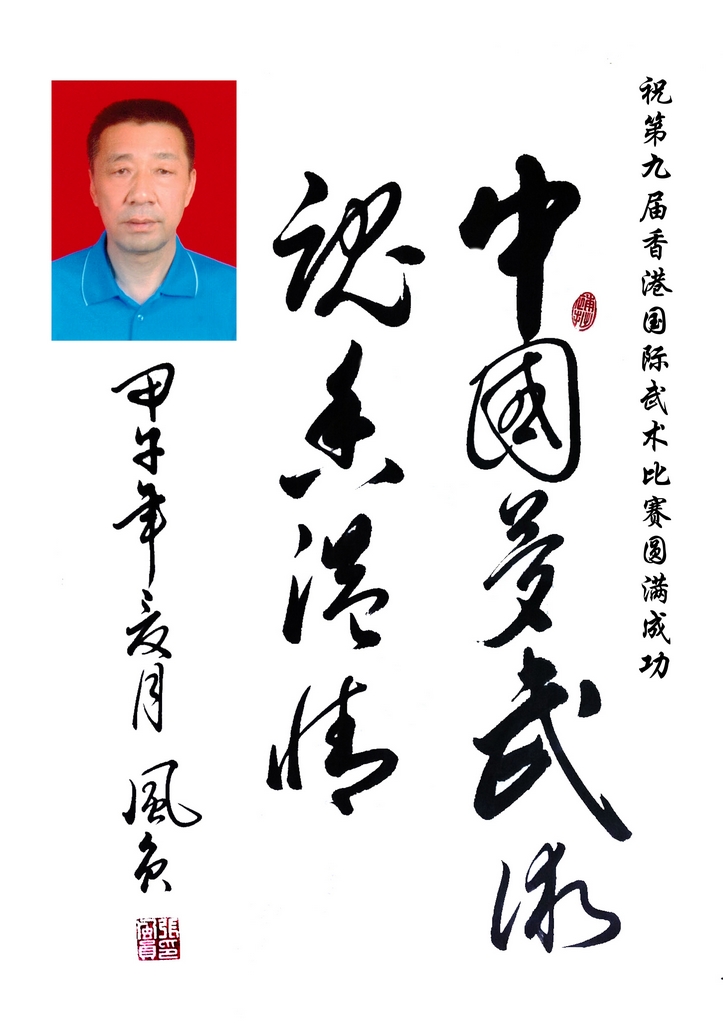 祝第九届香港国际武术比赛圆满成功
中國夢武術
魂香港情
甲午年夏月 風員
張風員印